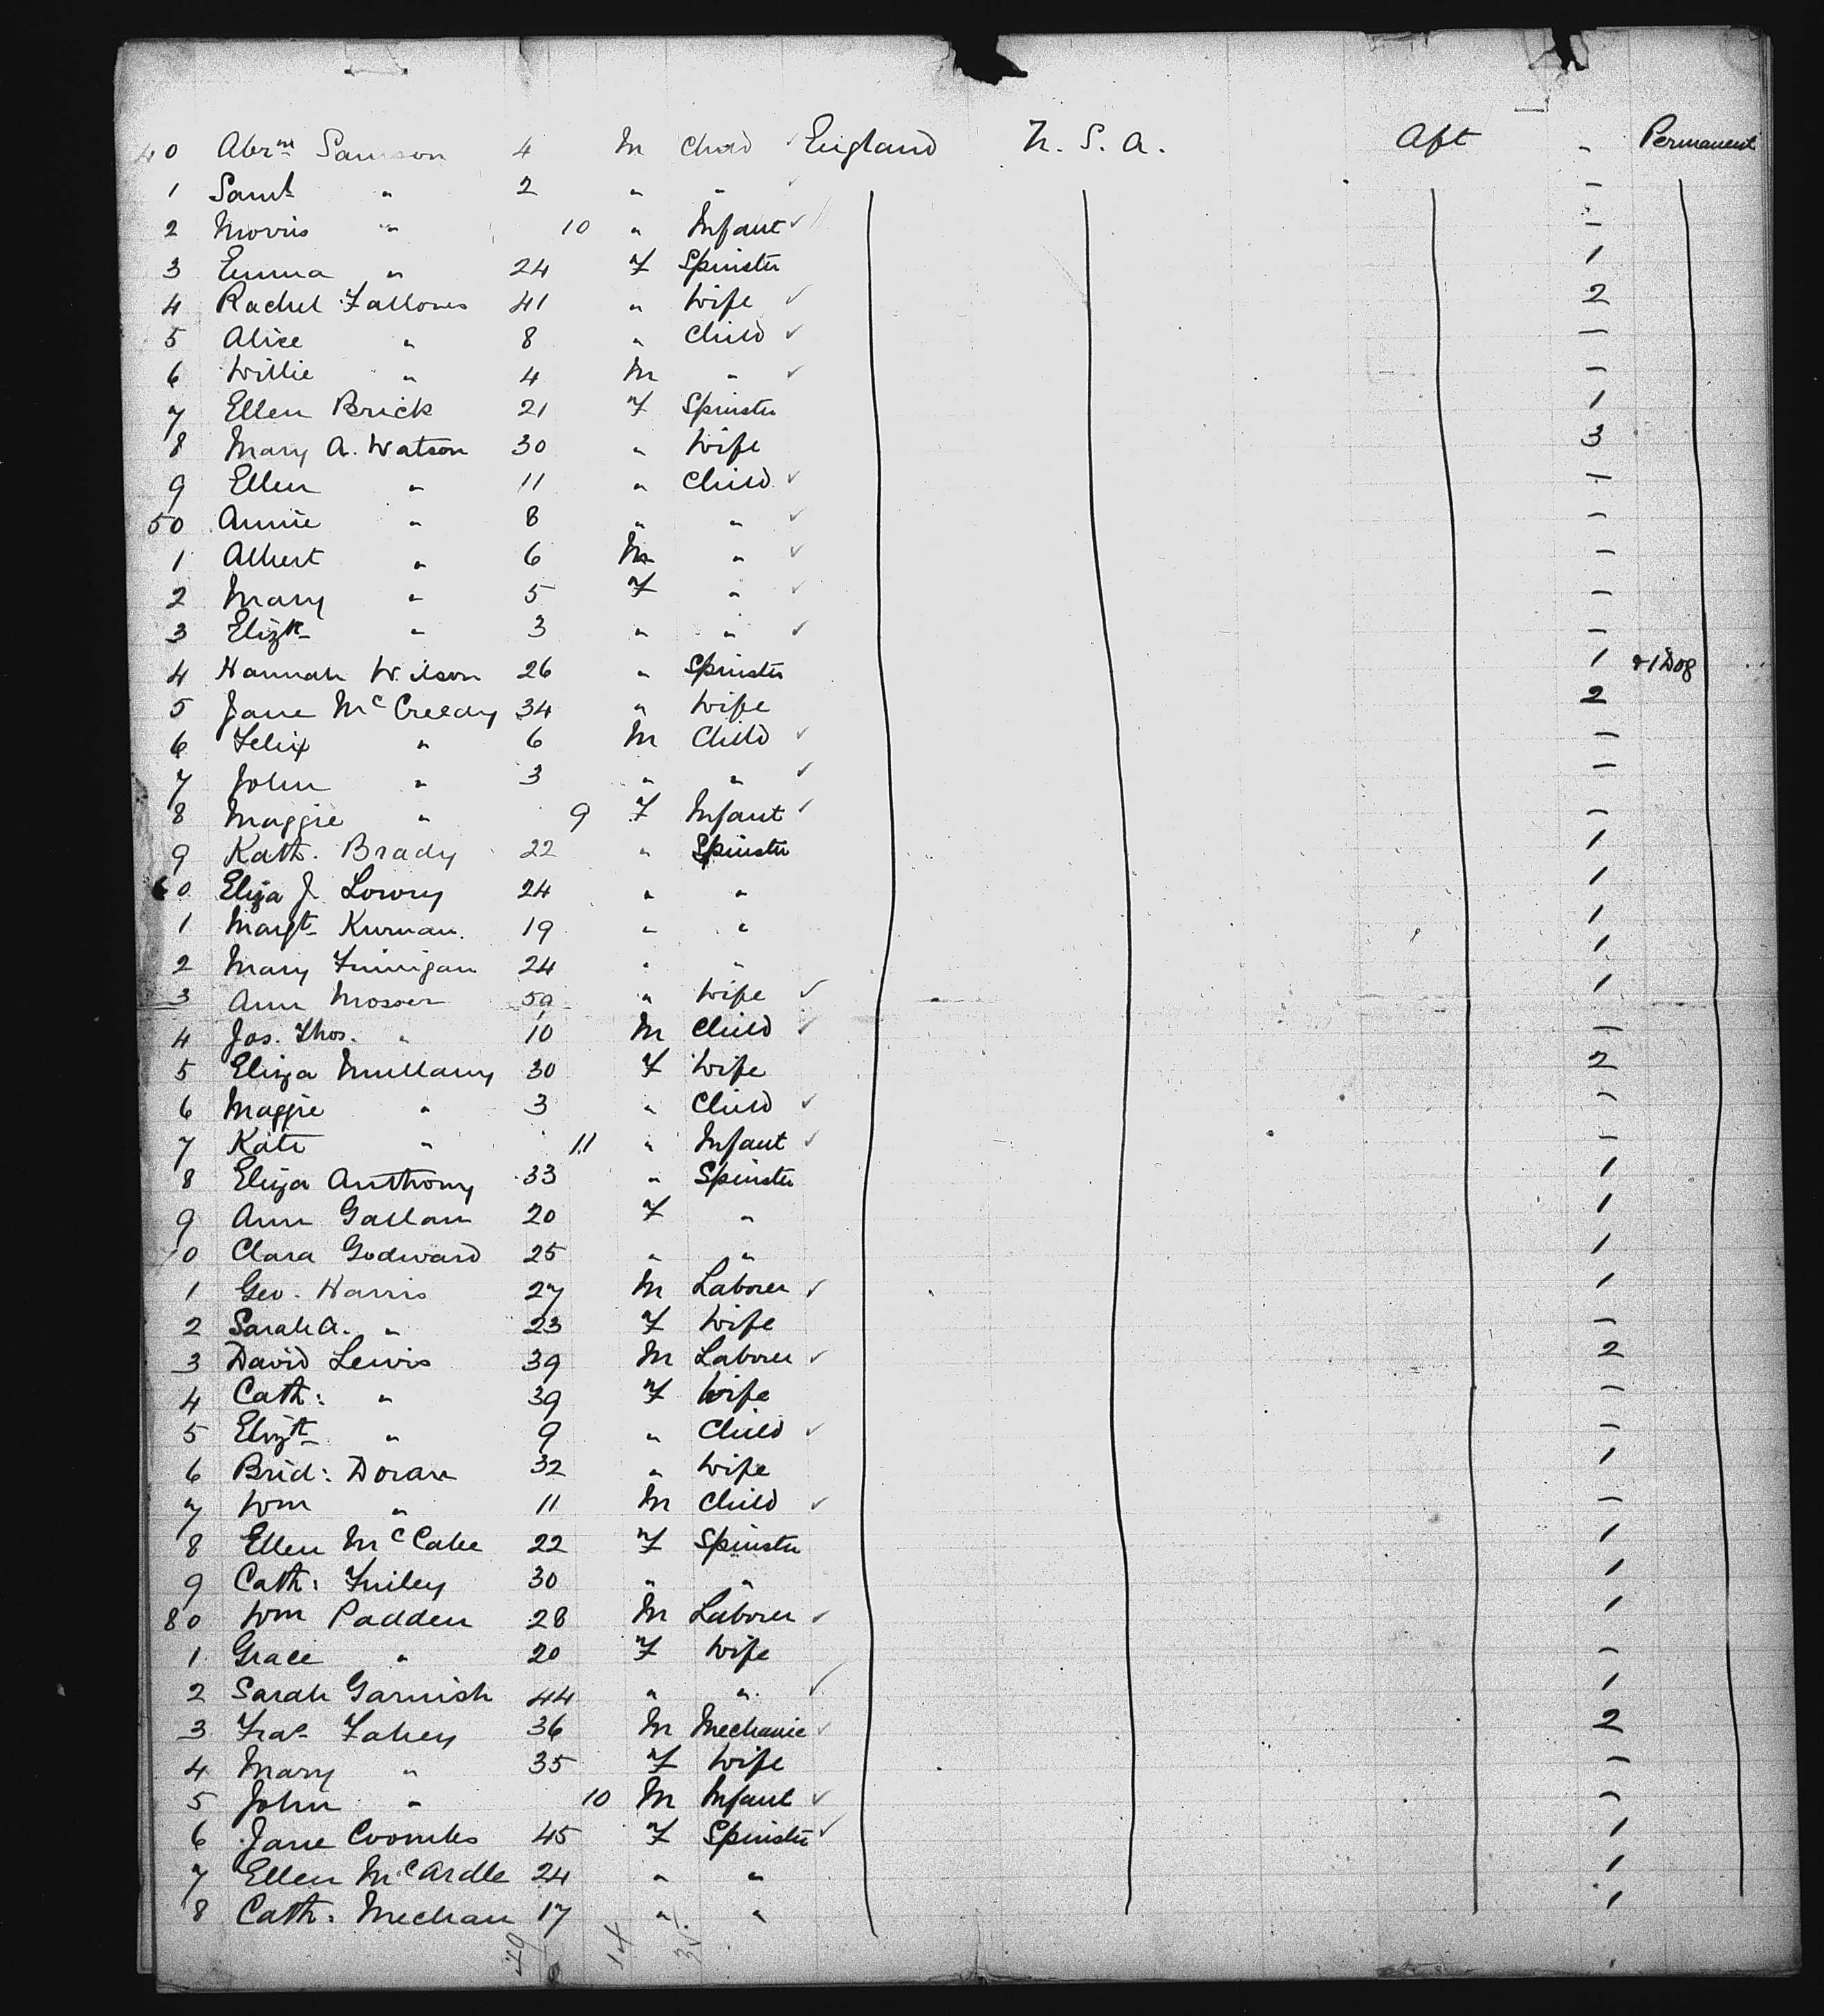 40 Abrm Samson 4 M Child England U.S.A. Aft " Permanent
1 Saml " 2 " " —
2 Morris " 10 " Infant —
3 Emma " 24 F Spinster 1
4 Rachel Fallows 41 " Wife 2
5 Alice " 8 " Child —
6 Willie " 4 M " —
7 Ellen Brick 21 F Spinster 1
8 Mary A. Watson 30 " Wife 3
9 Ellen " 11 " Child —
50 Annie " 8 " " —
1 Albert " 6 M " —
2 Mary " 5 F " —
3 Elizth " 3 " " —
4 Hannah Wilson 26 " Spinster 1 & 1 Dog
5 Jane McCreedy 34 " Wife 2
6 Felix " 6 M Child —
7 John " 3 " " —
8 Maggie " 9 F Infant —
9 Kath. Brady 22 " Spinster 1
60 Eliza J. Lowry 24 " " 1
1 Margt Kurnan 19 " " 1
2 Mary Finnigan 24 " " 1
3 Ann Mosser 50 " Wife 1
4 Jos. Thos. " 10 M Child —
5 Eliza Mullany 30 F Wife 2
6 Maggie " 3 " Child —
7 Kate " 11 " Infant —
8 Eliza Anthony 33 " Spinster 1
9 Ann Gallan 20 F " 1
70 Clara Godward 25 " " 1
1 Geo. Harris 27 M Laborer 1
2 Sarah A. " 23 F Wife —
3 David Lewis 39 M Laborer 2
4 Cath: " 39 F Wife —
5 Elizth " 9 " Child —
6 Brid: Doran 32 " Wife 1
7 Wm " 11 M Child —
8 Ellen McCabe 22 F Spinster 1
9 Cath: Finley 30 " " 1
80 Wm Padden 28 M Laborer 1
1 Grace " 20 F Wife —
2 Sarah Garnish 44 " " 1
3 Fras Fahey 36 M Mechanic 2
4 Mary " 35 F Wife —
5 John " 10 M Infant —
6 Jane Coombs 45 F Spinster 1
7 Ellen McArdle 24 " " 1
8 Cath: Mechan 17 " " 1
49 14 35